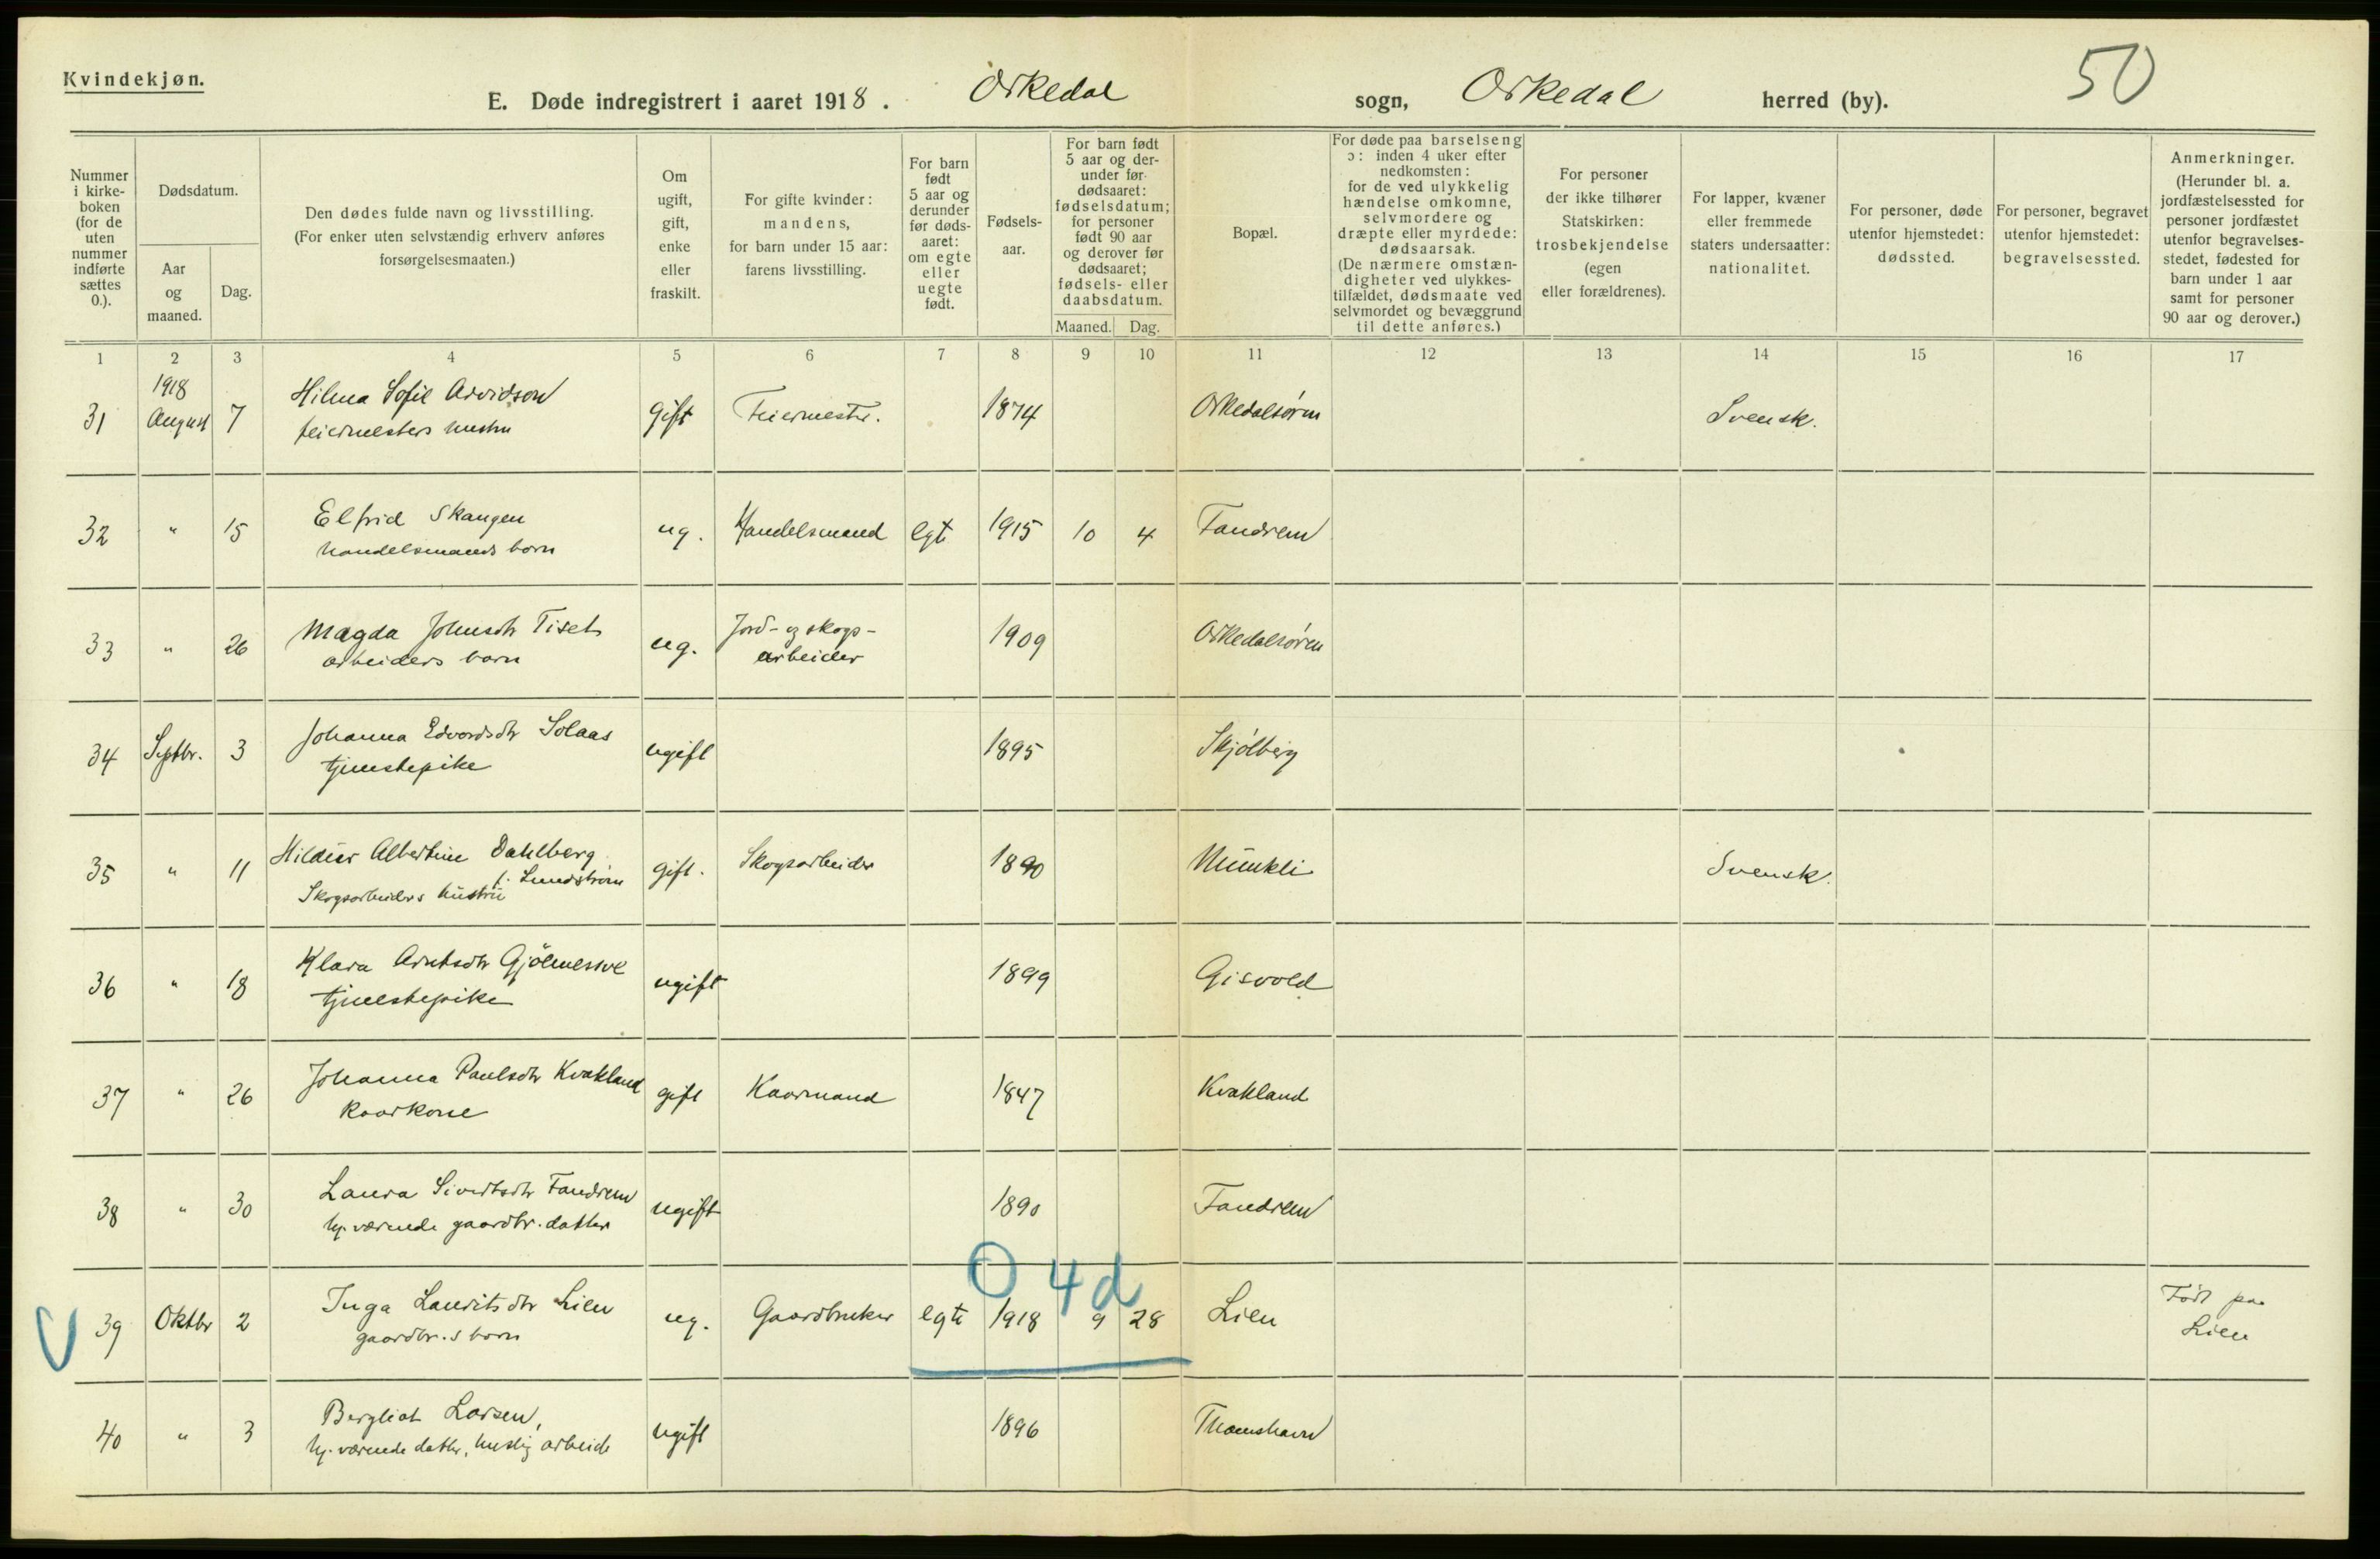 Kvindekjøn.
50
E. Døde indregistrert i aaret 1918. Orkedal sogn, Orkedal herred (by).
Nummer i kirke-boken (for de uten nummer indførte sættes 0.).
Dødsdatum.
Aar og maaned.
Dag.
Den dødes fulde navn og livsstilling.
(For enker uten selvstændig erhverv anføres forsørgelsesmaaten.)
Om ugift, gift, enke eller fraskilt.
For gifte kvinder: mandens, for barn under 15 aar: farens livsstilling.
For barn født 5 aar og derunder før døds-aaret: om egte eller uegte født.
Fødsels-aar.
For barn født 5 aar og der-under før dødsaaret: fødselsdatum; for personer født 90 aar og derover før dødsaaret; fødsels- eller daabsdatum.
Maaned. Dag.
Bopæl.
For døde paa barselseng ɔ: inden 4 uker efter nedkomsten: for de ved ulykkelig hændelse omkomne, selvmordere og dræpte eller myrdede: dødsaarsak. (De nærmere omstæn-digheter ved ulykkes-tilfældet, dødsmaate ved selvmordet og bevæggrund til dette anføres.)
For personer der ikke tilhører Statskirken: trosbekjendelse (egen eller forældrenes).
For lapper, kvæner eller fremmede staters undersaatter: nationalitet.
For personer, døde utenfor hjemstedet: dødssted.
For personer, begravet utenfor hjemstedet: begravelsessted.
Anmerkninger. (Herunder bl. a. jordfæstelsessted for personer jordfæstet utenfor begravelses-stedet, fødested for barn under 1 aar samt for personer 90 aar og derover.)
1 2 3 4 5 6 7 8 9 10 11 12 13 14 15 16 17
1918
31 August 7 Hilma Sofie Arvidson gift Feiermester. 1874 Orkedalsøren Svensk.
feiermesters hustru
32 " 15 Elfrid Skaugen ug. Handelsmand egt 1915 10 4 Fandrem
handelsmands barn
33 " 26 Magda Johnsdtr Tiset ug. Jord- og skogs- 1909 Orkedalsøren
arbeiders barn arbeider
34 Septbr. 3 Johanna Edvardsdtr Solaas ugift 1895 Skjølberg
tjenestepike
35 " 11 Hildur Albertine Dahlberg gift. Skogsarbeider 1890 Munkli Svensk.
f. Lundstrøm
Skogsarbeiders hustru
36 " 18 Klara Arntsdtr ugift 1899 Gisvold
tjenestepike
37 " 26 Johanna Paulsdtr Kvakland gift Kaarmand 1847 Kvakland
kaarkone
38 " 30 Laura Sivertsdtr Fandrem ugift 1890 Fandrem
hj. værende gaardbr. datter
0 4d
39 Oktbr 2 Inga Lauritsdtr Lien ug. Gaardbruker egte 1918 9 28 Lien Født paa
gaardbr.s barn Lien
40 " 3 Bergliot Larsen, ugift 1896 Thamshavn
hj. værende datter, huslig arbeide